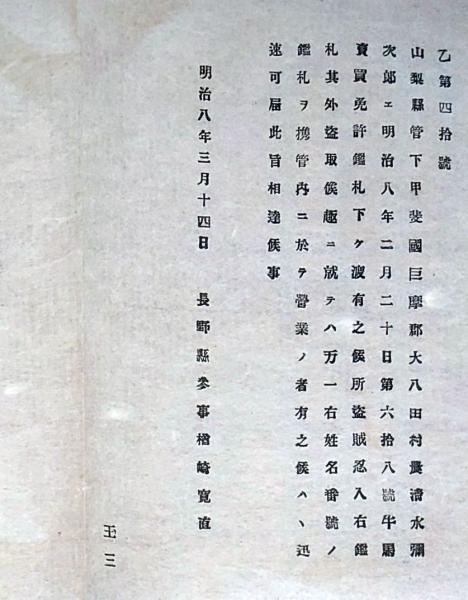 乙第四拾號
山梨縣管下甲斐國巨摩郡大八田村農淸水彌
次郎ェ明治八年二月二十日第六拾八號牛馬
賣買免許鑑札下ケ渡有之候所盜賊忍入右鑑
札其外盜取候趣ニ就テハ万一右姓名番號ノ
鑑札ヲ携管內ニ於テ營業ノ者有之候ハヽ迅
速可屆此旨相達候事
明治八年三月十四日 長野縣參事楢崎寬直
王三